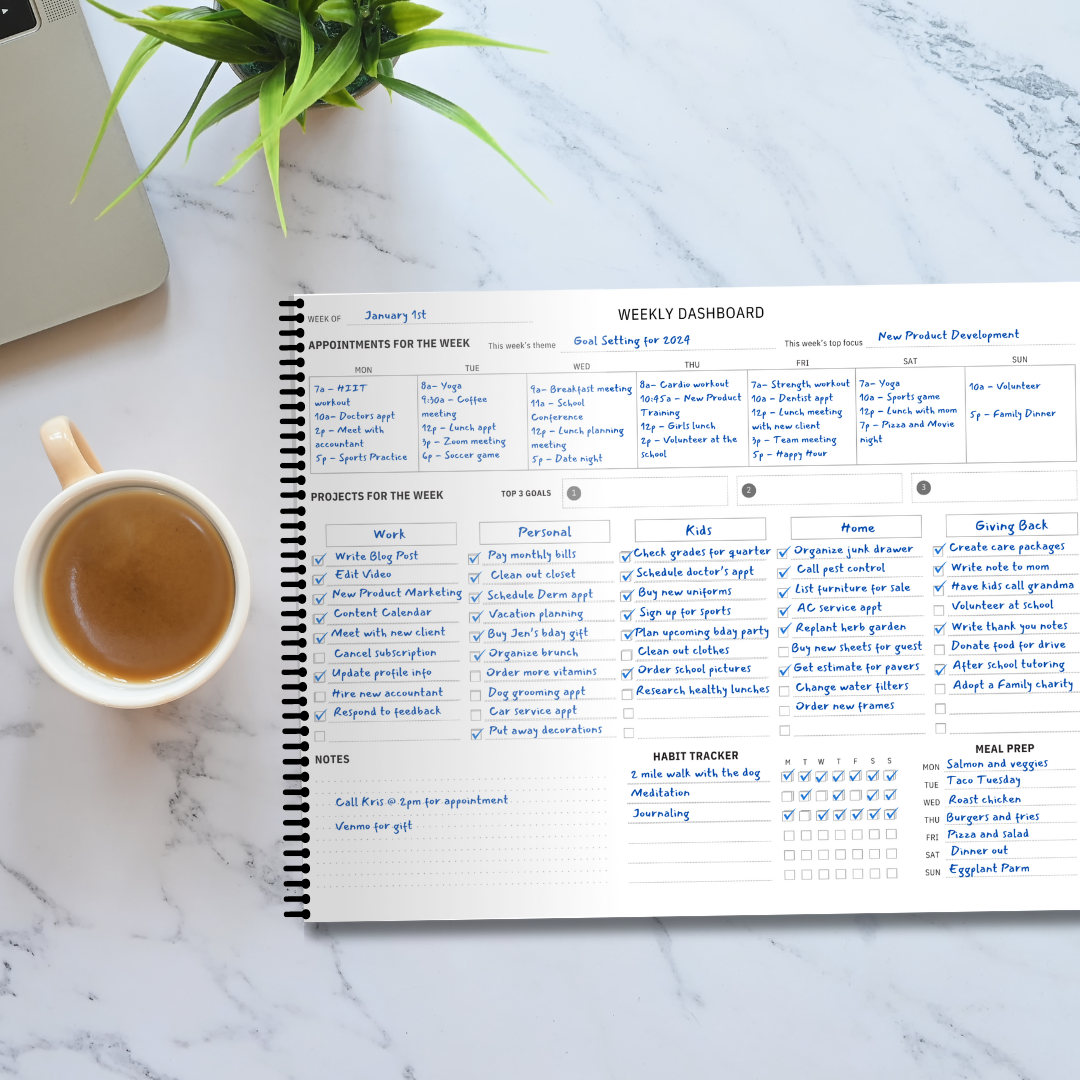 WEEKLY DASHBOARD
WEEK OF January 1st
APPOINTMENTS FOR THE WEEK
This week's theme Goal Setting for 2024
This week's top focus New Product Development
MON
7a – HIIT
workout
10a– Doctors appt
2p – Meet with
accountant
5p – Sports Practice
TUE
8a– Yoga
9:30a – Coffee
meeting
12p – Lunch appt
3p – Zoom meeting
6p – Soccer game
WED
9a– Breakfast meeting
11a – School
Conference
12p – Lunch planning
meeting
5p – Date night
THU
8a– Cardio workout
10:45a – New Product
Training
12p – Girls lunch
2p – Volunteer at the
school
FRI
7a– Strength workout
10a – Dentist appt
12p – Lunch meeting
with new client
3p – Team meeting
5p – Happy Hour
SAT
7a– Yoga
10a – Sports game
12p – Lunch with mom
7p – Pizza and Movie
night
SUN
10a – Volunteer
5p – Family Dinner
PROJECTS FOR THE WEEK
TOP 3 GOALS
1
2
3
Work
Write Blog Post
Edit Video
New Product Marketing
Content Calendar
Meet with new client
Cancel subscription
Update profile info
Hire new accountant
Respond to feedback
Personal
Pay monthly bills
Clean out closet
Schedule Derm appt
Vacation planning
Buy Jen's bday gift
Organize brunch
Order more vitamins
Dog grooming appt
Car service appt
Put away decorations
Kids
Check grades for quarter
Schedule doctor's appt
Buy new uniforms
Sign up for sports
Plan upcoming bday party
Clean out clothes
Order school pictures
Research healthy lunches
Home
Organize junk drawer
Call pest control
List furniture for sale
AC service appt
Replant herb garden
Buy new sheets for guest
Get estimate for pavers
Change water filters
Order new frames
Giving Back
Create care packages
Write note to mom
Have kids call grandma
Volunteer at school
Write thank you notes
Donate food for drive
After school tutoring
Adopt a Family charity
NOTES
Call Kris @ 2pm for appointment
Venmo for gift
HABIT TRACKER
M T W T F S S
2 mile walk with the dog
Meditation
Journaling
MEAL PREP
MON Salmon and veggies
TUE Taco Tuesday
WED Roast chicken
THU Burgers and fries
FRI Pizza and salad
SAT Dinner out
SUN Eggplant Parm